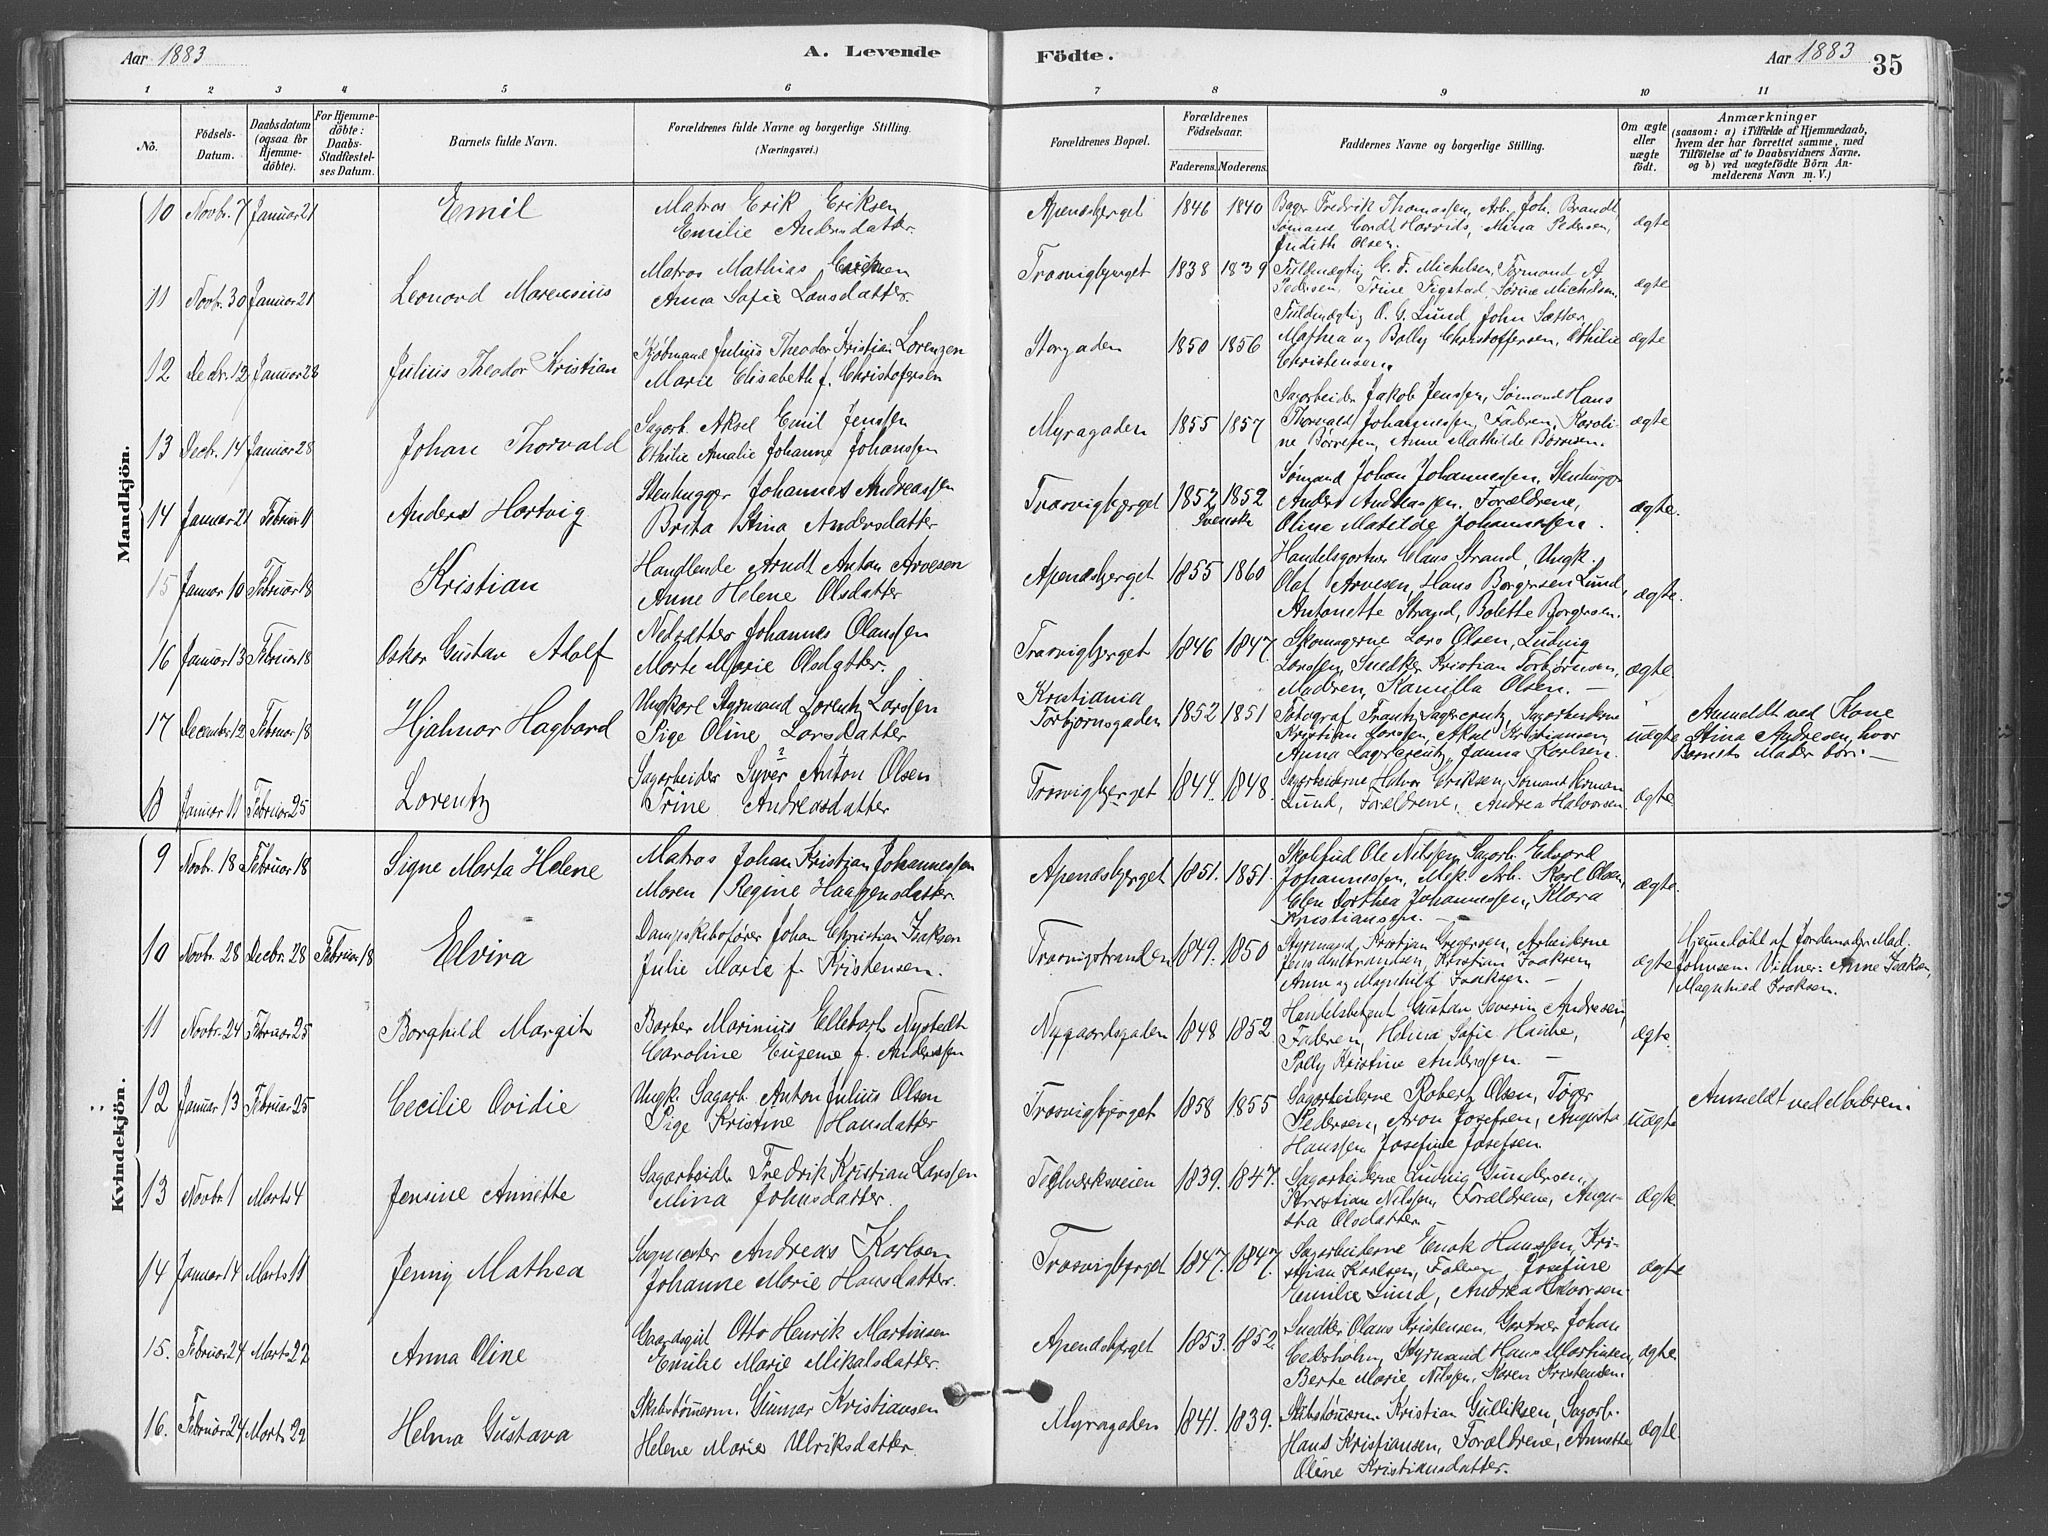 Aar 1883
A. Levende
Födte.
Aar 1883
35
1 2 3 4 5 6 7 8 9 10 11
No.
Födsels-Datum.
Daabsdatum (ogsaa for Hjemme-döbte).
For Hjemme-döbte: Daabs-Stadfæstel-ses Datum.
Barnets fulde Navn.
Forældrenes fulde Navne og borgerlige Stilling.
(Næringsvei.)
Forældrenes Bopæl.
Forældrenes Födselsaar.
Faderens. Moderens.
Faddernes Navne og borgerlige Stilling.
Om ægte eller uægte födt.
Anmærkninger
(saasom: a) i Tilfælde af Hjemmedaab, hvem der har forrettet samme, med Tilföielse af to Daabsvidners Navne. og b) ved uægtefödte Börn An-melderens Navn m. V.)
Mandkjön.
10 Novbr. 7 Januar 21 Emil
Matros Erik Eriksen
Emilie Andersdatter.
Apenæsbjerget 1846 1840
Bager Fredrik Thomassen, Arb. Joh. Brandt,
Sømænd Cordt Horvids, Mina Pedersen,
Judith Olsen.
ægte
11 Novbr. 30 Januar 21 Leonard Marensius
Matros Mathias Eriksen
Anna Sofie Larsdatter
Trosvigbjerget 1838 1839
Fuldmægtig C. F. Michelsen, Formand A.
Pedersen, Trine Tigstad, Sørine Michelsen,
ægte
12 Decbr. 12 Januar 28 Julius Theodor Kristian
Kjøbmand Julius Theodor Kristian Lorenzen
Marie Elisabeth f. Christofersen
Storgaden 1850 1856
Fuldmægtig O. G. Lund, John Sætter,
Mathea og Bolly Christoffersen, Othilie
Christensen.
ægte
13 Decb. 14 Januar 28 Johan Thorvald
Sagarb. Aksel Emil Jenssen
Othilie Amalie Johanne Johanssen
Myragaden 1855 1857
Sagarbeider Jakob Jenssen, Sømand Hans
Thorvald Johannessen, Fadren, Karoli-
ne Børresen, Anne Mathilde Børresen.
ægte
14 Januar 21 Februar 11 Anders Hartvig
Stenhugger Johannes Andreassen
Brita Stina Andersdatter
Trosvigbjerget 1852 1852
Svensk
Sømand Johan Johannessen, Stenhugger
Anders Andreassen, Forældrene,
Oline Matilde Johannessen.
ægte.
15 Januar 10 Februar 18 Kristian
Handlende Arndt Anton Arvesen
Anne Helene Olsdatter
Apenæsbjerget 1855 1860
Handelsgartner Claus Strand, Ungk.
Olaf Arvesen, Hans Borgersen Lund,
Antonette Strand, Bolette Borgersen.
ægte.
16 Januar 13 Februar 18 Oskar Gustav Adolf
Nedsætter Johannes Olaussen
Marte Marie Olsdatter.
Trosvigbjerget 1846 1847.
Skomagerne Lars Olsen, Ludvig
Larssen, Snedker Kristian Torbjørnsen,
Moderen, Kamilla Olsen. —
ægte
17 December 12 Februar 18 Hjalmar Hagbard
Ungkarl Styrmand Lorentz Larssen
Pige Oline Larsdatter
Kristiania
Torbjørnsgaden 1852 1851
Fotograf Frantz Lagercrantz, Sagarbeiderne
Kristian Larssen, Aksel Kristiansen,
Anna Lagercrantz, Janna Karlsen.
uægte
Anmeldt ved Kone
Stina Andresen, hvor
Barnets Moder bor. —
18 Januar 11 Februar 25 Lorentz
Sagarbeider Syver Anton Olsen
Trine Andreasdatter
Trosvigbjerget 1844. 1848.
Sagarbeiderne Halvor Eriksen, Sømand Herman
Lund, Forældrene, Andrea Halvorsen.
ægte
Kvindekjön.
9 Novbr. 18 Februar 18 Signe Marta Helene
Matros Johan Kristian Johannessen
Maren Regine Haagensdatter.
Apenæsbjerget 1851. 1851.
Skolefud Ole Nilssen, Sagarb. Edvard
Johannessen, Mek. Arb. Karl Olsen,
Elen Dorthea Johannessen, Klara
Kristiansen. —
ægte.
10 Novbr. 28 Decbr. 28 Februar 18 Elvira
Dampskibsfører Johan Christian Isaksen
Julie Marie f. Kristensen.
Trosvigstranden 1849. 1850
Styrmand Kristian Gregersen, Arbeiderne
Jens Amundsen, Kristian Isaksen,
Anne og Magnhild Isaksen. —
ægte
Hjemmedøbt af Jordemoder Mad.
Johnsen. Vidner: Anne Isaksen,
Magnhild Isaksen.
11 Novbr. 24 Februar 25 Borghild Margit
Barber Marinius Ellebart Nystedt
Caroline Eugene f. Anderssen
Nygaardsgaden 1848 1852
Handelsbetjent Gustav Severin Andresen,
Faderen, Helma Sofie Hauke,
Polly Kristine Anderssen. —
ægte.
12 Januar 13 Februar 25 Cecilie Ovidie
Ungk. Sagarb. Anton Julius Olsen
Pige Kristine Hansdatter
Trosvigbjerget 1858 1855
Sagarbeiderne Robert Olsen, Tøger
Pedersen, Aron Josefsen, Augusta
Hanssen, Josefine Josefsen.
uægte
Anmeldt ved Moderen.
13 Novbr. 1 Marts 4 Jensine Annette
Sagarbeider Fredrik Kristian Larssen
Mina Johnsdatter.
Teglverksveien 1839. 1847.
Sagarbeiderne Ludvig Gundersen,
Kristian Nilssen, Forældrene, Augu-
sta Olsdatter.
ægte
14 Januar 14 Marts 11 Jenny Mathea
Sagmester Andreas Karlsen
Johanne Marie Hansdatter.
Trosvigbjerget 1847. 1847.
Sagarbeiderne Enok Hanssen, Kri-
stian Karlsen, Faderen, Josefine
Emilie Lund, Andrea Halvorsen.
ægte
15. Februar 24 Marts 22 Anna Oline
Gaardsgut Otto Henrik Martinsen
Emilie Marie Mikalsdatter.
Apenæsbjerget 1853. 1852.
Snedker Olaus Kristensen, Gartner Johan
Cederholm, Styrmand Hans Martinsen,
Berte Marie Nilssen, Karen Kristensen.
ægte
16. Februar 24 Marts 29 Helma Gustava
Skibstømerm. Gunnar Kristiansen
Helene Marie Ulriksdatter.
Myragaden 1841. 1839.
Skibstømerm. Kristian Gulliksen, Sagarb.
Hans Kristiansen, Forældrene, Annette
Oline Kristiansdatter.
ægte